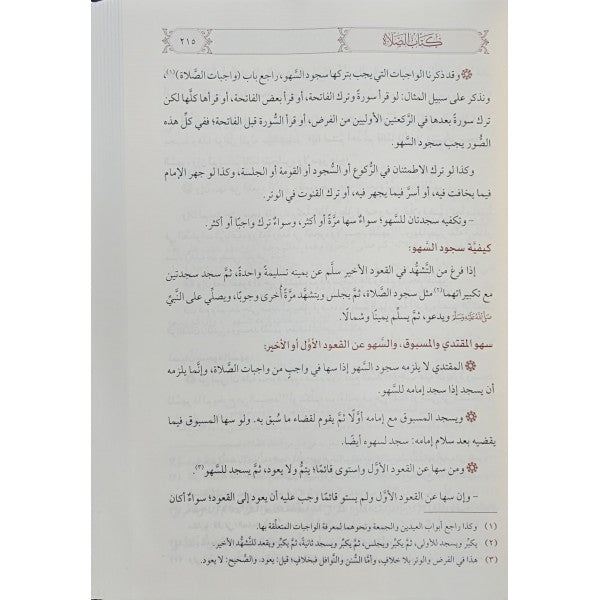 كتاب الصلاة
٢١٥
وقد ذكرنا الواجبات التي يجب بتركها سجود السَّهو، راجع باب (واجبات الصَّلاة)(١)،
ونذكر على سبيل المثال: لو قرأ سورةً وترك الفاتحة، أو قرأ بعض الفاتحة، أو قرأها كلَّها لكن
ترك سورةً بعدها في الرَّكعتين الأوليين من الفرض، أو قرأ السُّورة قبل الفاتحة؛ ففي كلِّ هذه
الصُّور يجب سجود السَّهو.
وكذا لو ترك الاطمئنان في الرُّكوع أو السُّجود أو القومة أو الجلسة، وكذا لو جهر الإمام
فيما يخافت فيه، أو أسرَّ فيما يجهر فيه، أو ترك القنوت في الوتر.
- وتكفيه سجدتان للسَّهو؛ سواءٌ سها مرَّةً أو أكثر، وسواءٌ ترك واجبًا أو أكثر.
كيفيَّة سجود السَّهو:
إذا فرغ من التَّشهُّد في القعود الأخير سلَّم عن يمينه تسليمةً واحدةً، ثمَّ سجد سجدتين
مع تكبيراتهما(٢) مثل سجود الصَّلاة، ثمَّ يجلس ويتشهَّد مرَّةً أُخرى وجوبًا، ويصلِّي على النَّبيِّ
صَلَّى اللَّهُ عَلَيْهِ وَسَلَّمَ ويدعو، ثمَّ يسلِّم يمينًا وشمالًا.
سهو المقتدي والمسبوق، والسَّهو عن القعود الأوَّل أو الأخير:
المقتدي لا يلزمه سجود السَّهو إذا سها في واجبٍ من واجبات الصَّلاة، وإنَّما يلزمه
أن يسجد إذا سجد إمامه للسَّهو.
ويسجد المسبوق مع إمامه أوَّلًا ثمَّ يقوم لقضاء ما سُبق به. ولو سها المسبوق فيما
يقضيه بعد سلام إمامه: سجد لسهوه أيضًا.
ومن سها عن القعود الأوَّل واستوى قائمًا؛ يتمُّ ولا يعود، ثمَّ يسجد للسَّهو(٣).
- وإن سها عن القعود الأوَّل ولم يستو قائمًا وجب عليه أن يعود إلى القعود؛ سواءٌ أكان
(١) وكذا راجع أبواب العيدين والجمعة ونحوهما لمعرفة الواجبات المتعلِّقة بها.
(٢) يكبِّر ويسجد للأولى، ثمَّ يكبِّر ويجلس، ثمَّ يكبِّر ويسجد ثانيةً، ثمَّ يكبِّر ويقعد للتَّشهُّد الأخير.
(٣) هذا في الفرض والوتر بلا خلافٍ، وأمَّا السُّنن والنَّوافل فبخلافٍ؛ قيل: يعود. والصَّحيح: لا يعود.